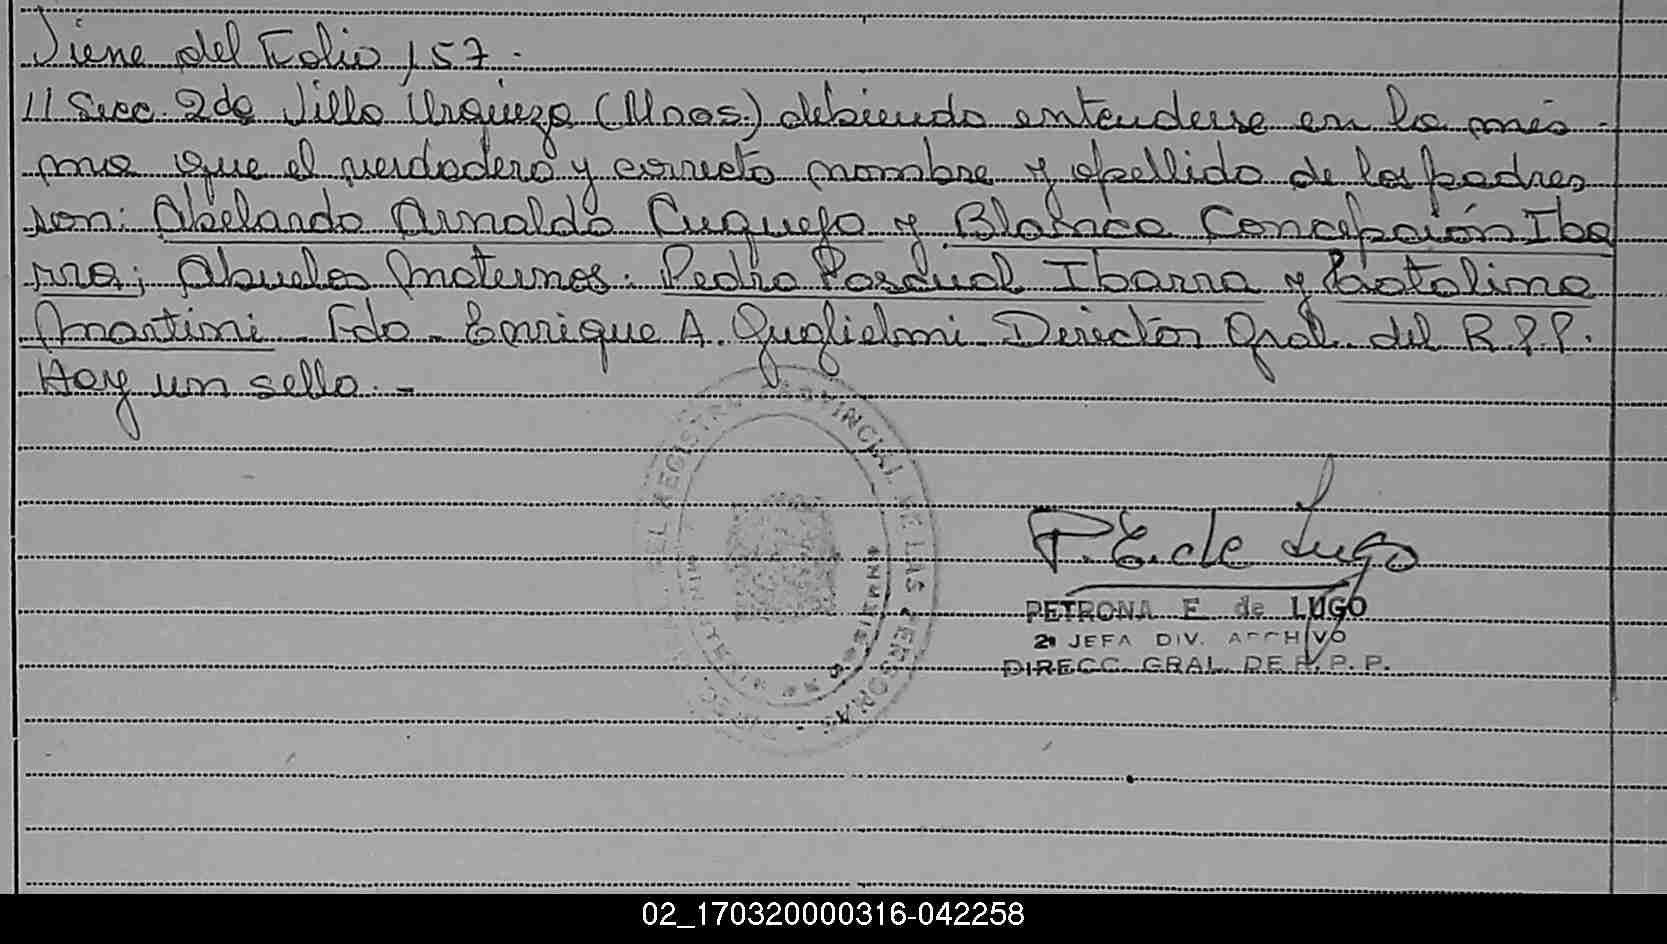 Viene del Folio 157.
11 Secc. 2da Villa Urquiza (Mnes.) debiendo entenderse en la mis-
ma que el verdadero y correcto nombre y apellido de los padres
son: Abelardo Arnaldo Cuquejo y Blanca Concepción Iba
rra; Abuelos Maternos: Pedro Pascual Ibarra y Catalina
Martini - Fdo. Enrique A. Guglielmi Director Gral. del R.P.P.
Hay un sello. -
DEL REGISTRO PROVINCIAL DE LAS PERSONAS
P. E. de Lugo
PETRONA E de LUGO
2ª JEFA DIV. ARCHIVO
DIRECC. GRAL. DE R. P. P.
02_170320000316-042258